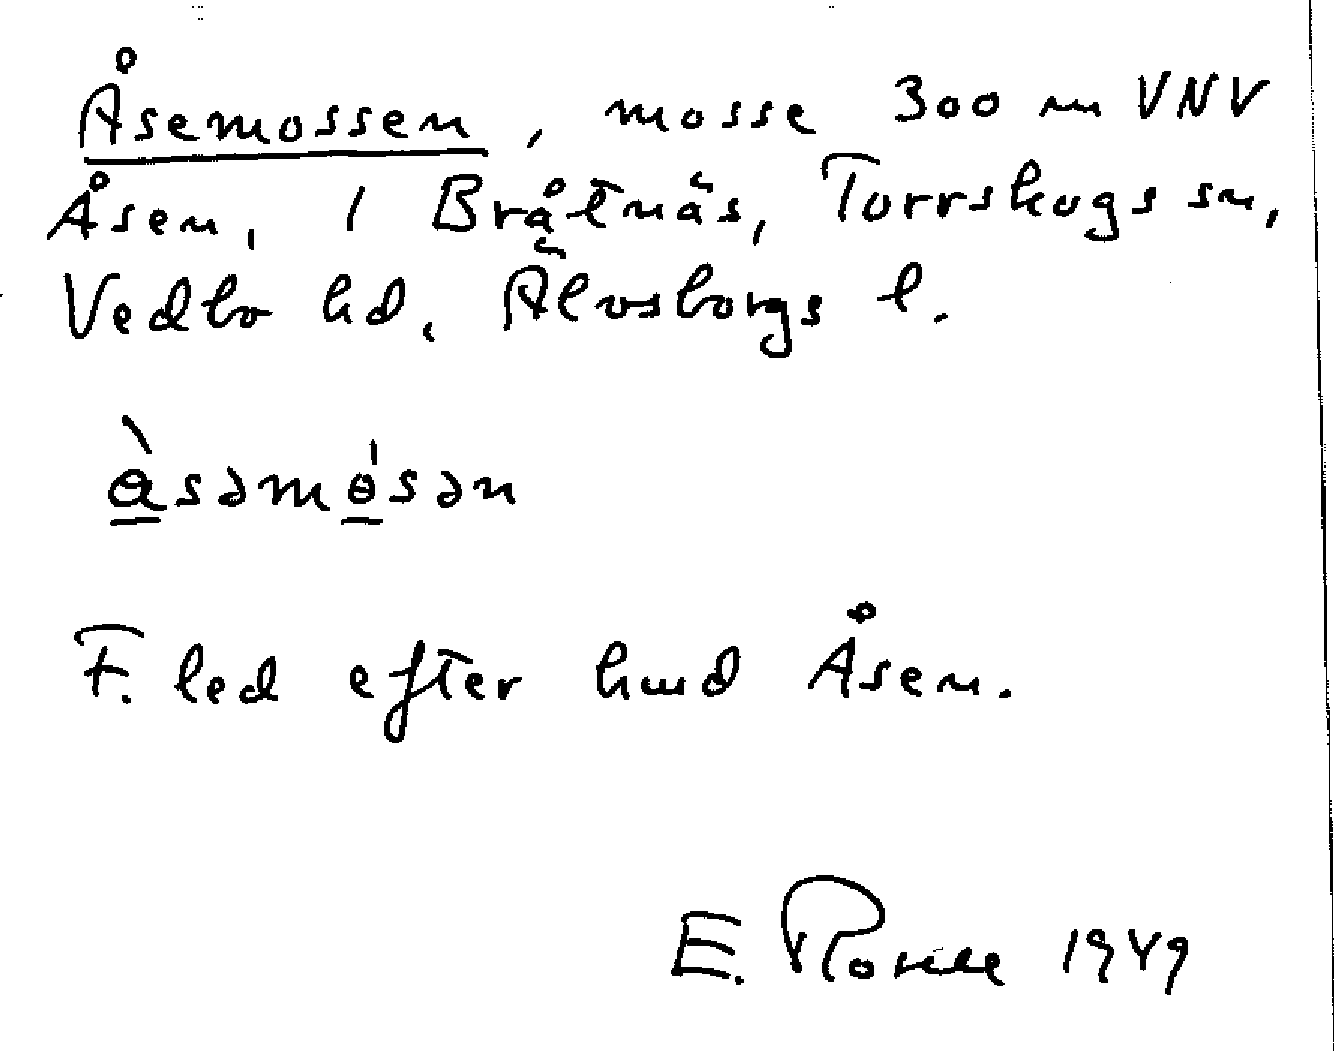 Åsemossen, mosse 300 m VNV
Åsen, 1 Bråtnäs, Torrskogs sn,
Vedbo hd, Älvsborgs l.
F. led efter hmd Åsen.
E. 1949